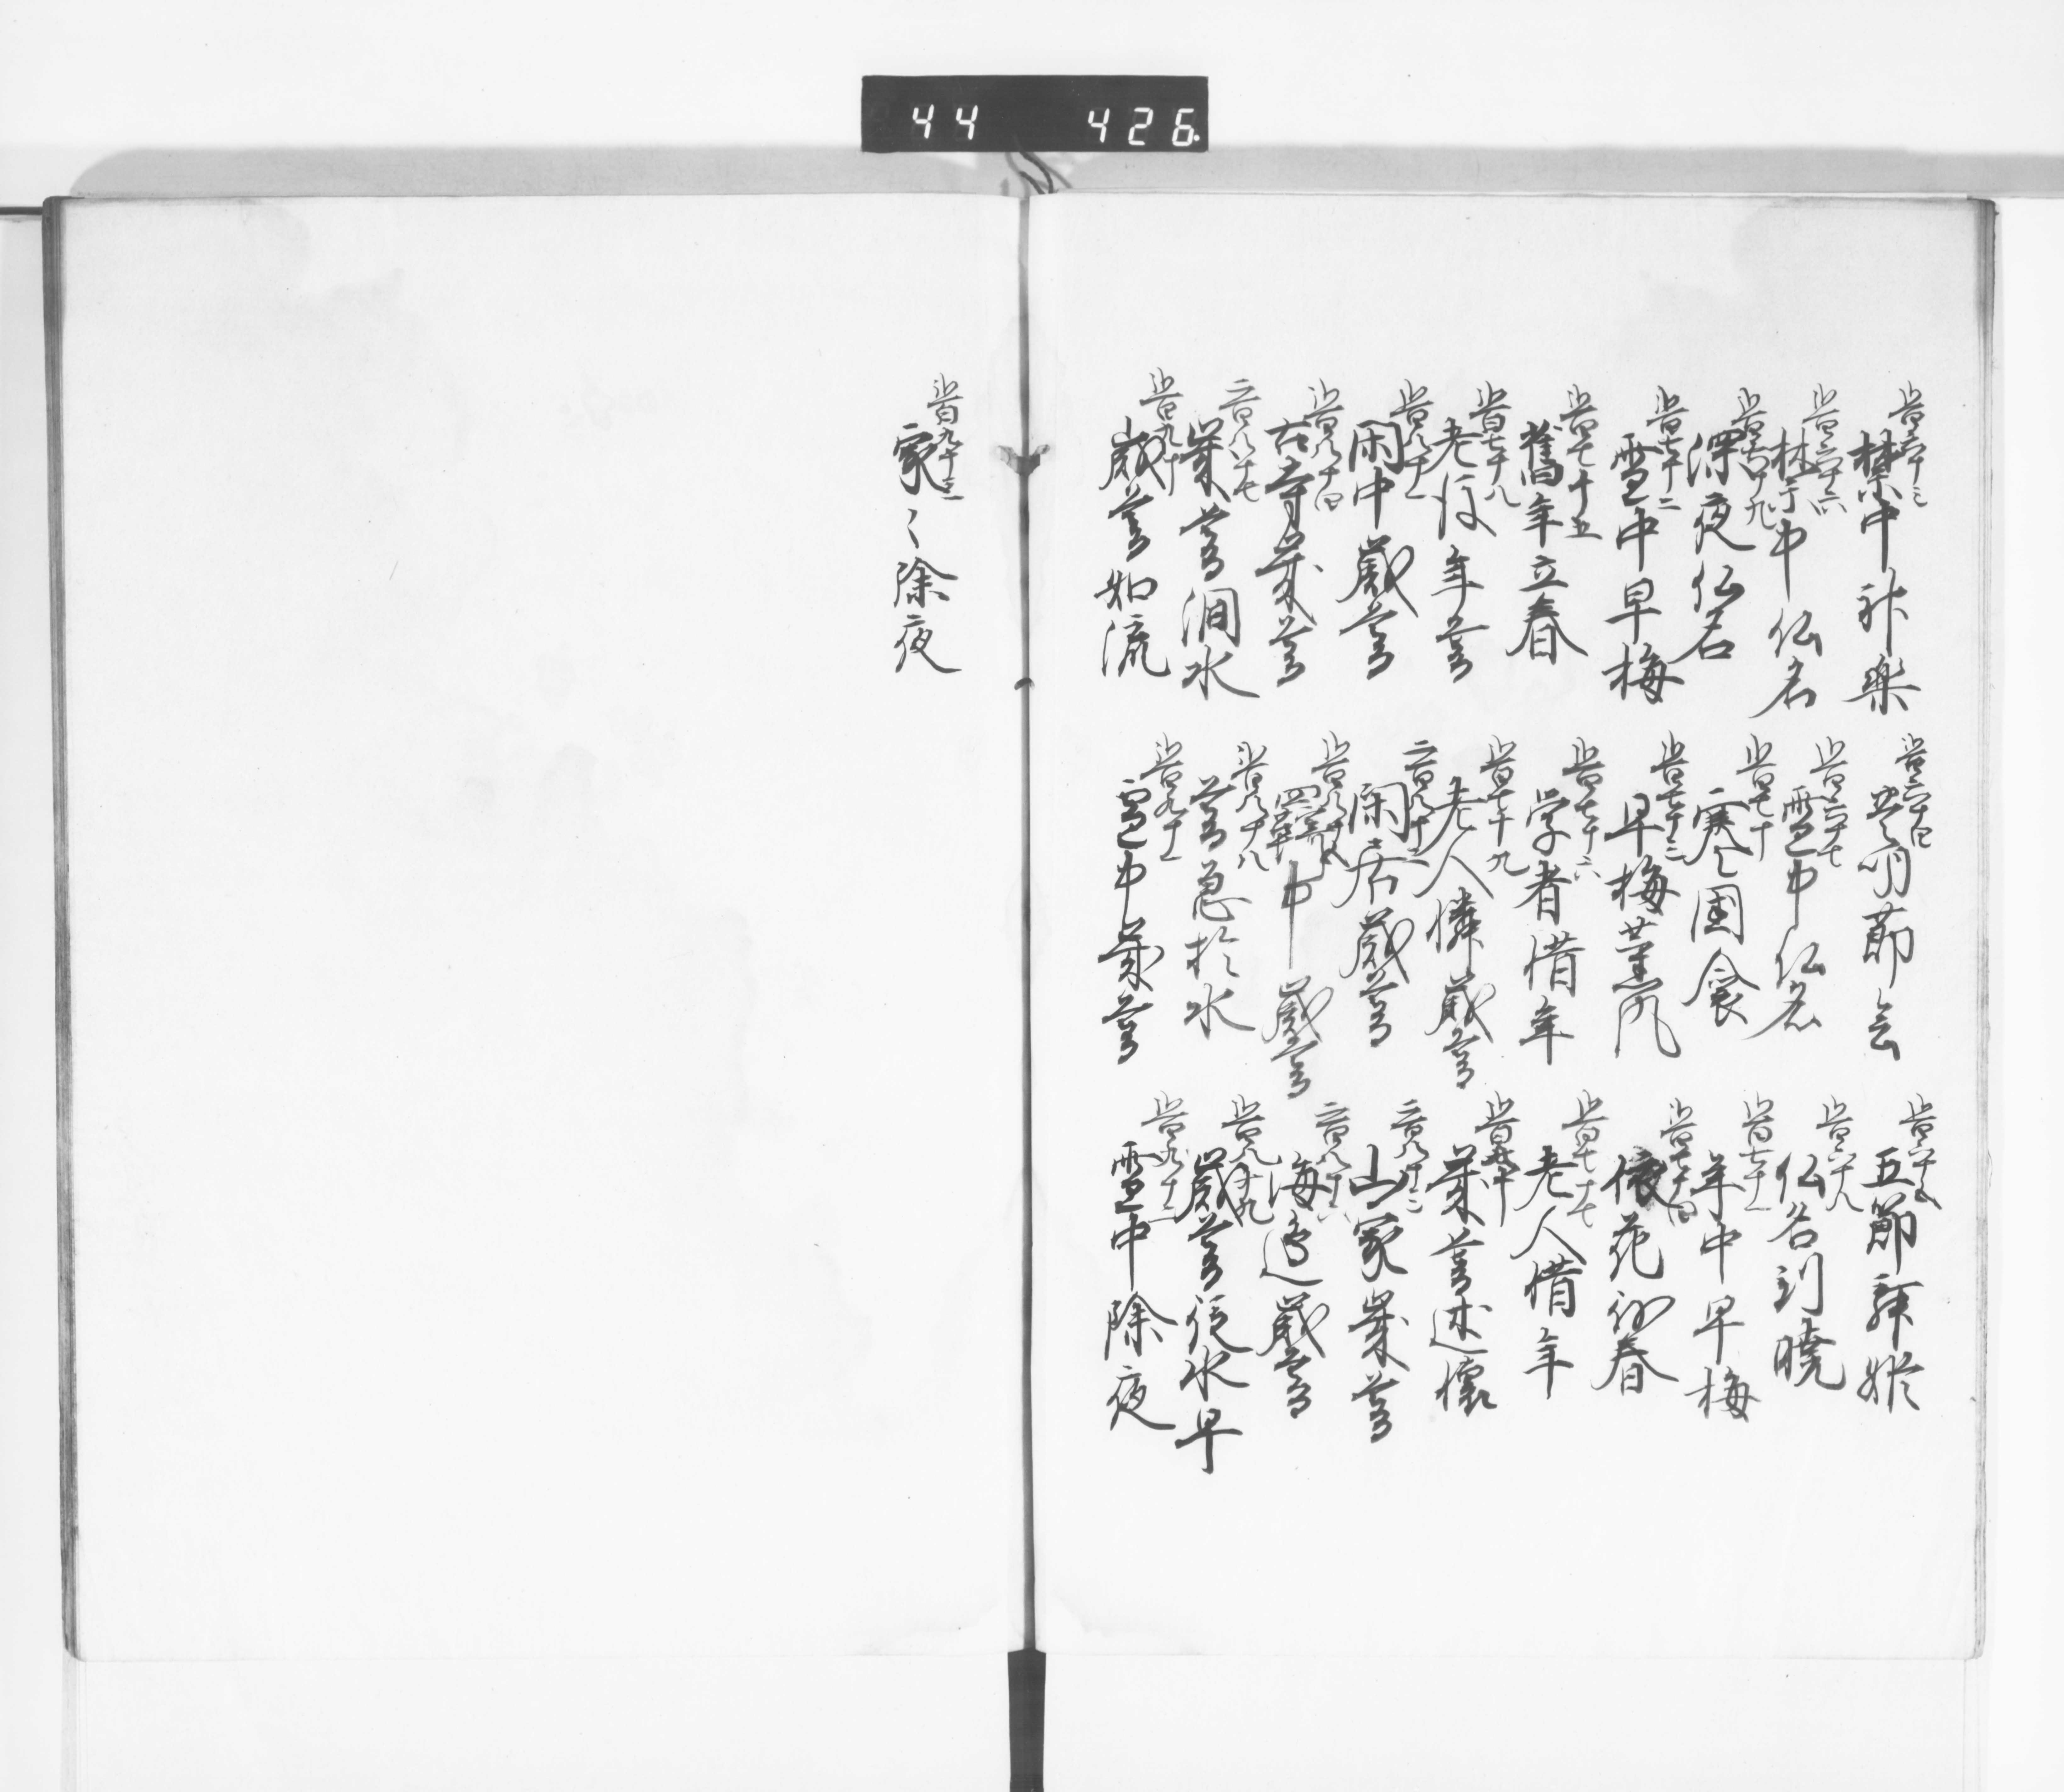 44 426
二百六十三
禁中神楽
二百六十四
豊明節会
二百六十五
五節舞姫
二百六十六
禁中仏名
二百六十七
雪中仏名
二百六十八
仏名到暁
二百六十九
深夜仏名
二百七十
寒閨衾
二百七十一
年中早梅
二百七十二
雪中早梅
二百七十三
早梅薫風
二百七十四
依花待春
二百七十五
舊年立春
二百七十六
学者惜年
二百七十七
老人惜年
二百七十八
老後年暮
二百七十九
老人憐歳暮
二百八十
歳暮述懐
二百八十一
閑中歳暮
二百八十二
閑居歳暮
二百八十三
山家歳暮
二百八十四
古寺歳暮
二百八十五
羇中歳暮
二百八十六
海邊歳暮
二百八十七
歳暮澗水
二百八十八
暮急於水
二百八十九
歳暮従水早
二百九十
歳暮如流
二百九十一
雪中歳暮
二百九十二
雪中除夜
二百九十三
家々除夜